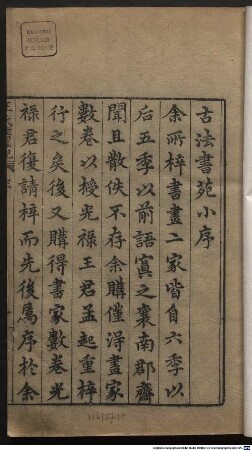 古法書苑小序
余所梓書畫二家皆自六季以
后五季以前語寘之襄南郡齋
聞且散佚不存余購僅淂畫家
數卷以授光祿王君孟起重梓
行之矣後又購得書家數卷光
祿君復請梓而先後屬序於余